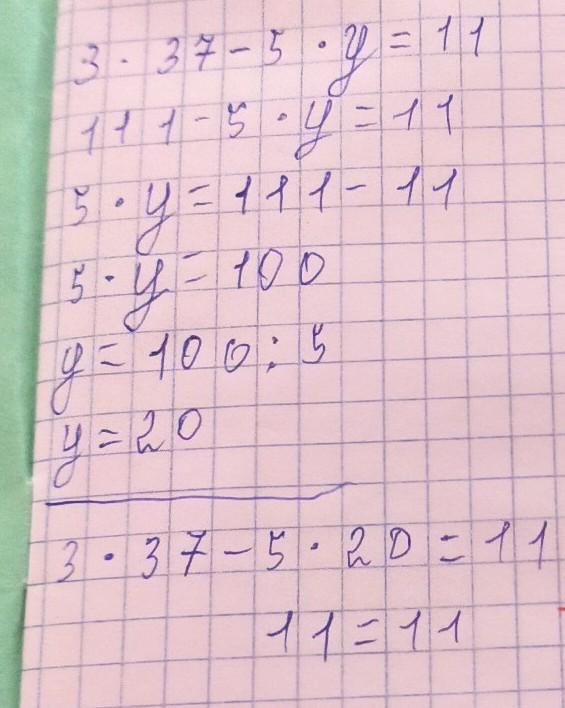 3 · 37 - 5 · y = 11
111 - 5 · y = 11
5 · y = 111 - 11
5 · y = 100
y = 100 : 5
y = 20
3 · 37 - 5 · 20 = 11
11 = 11